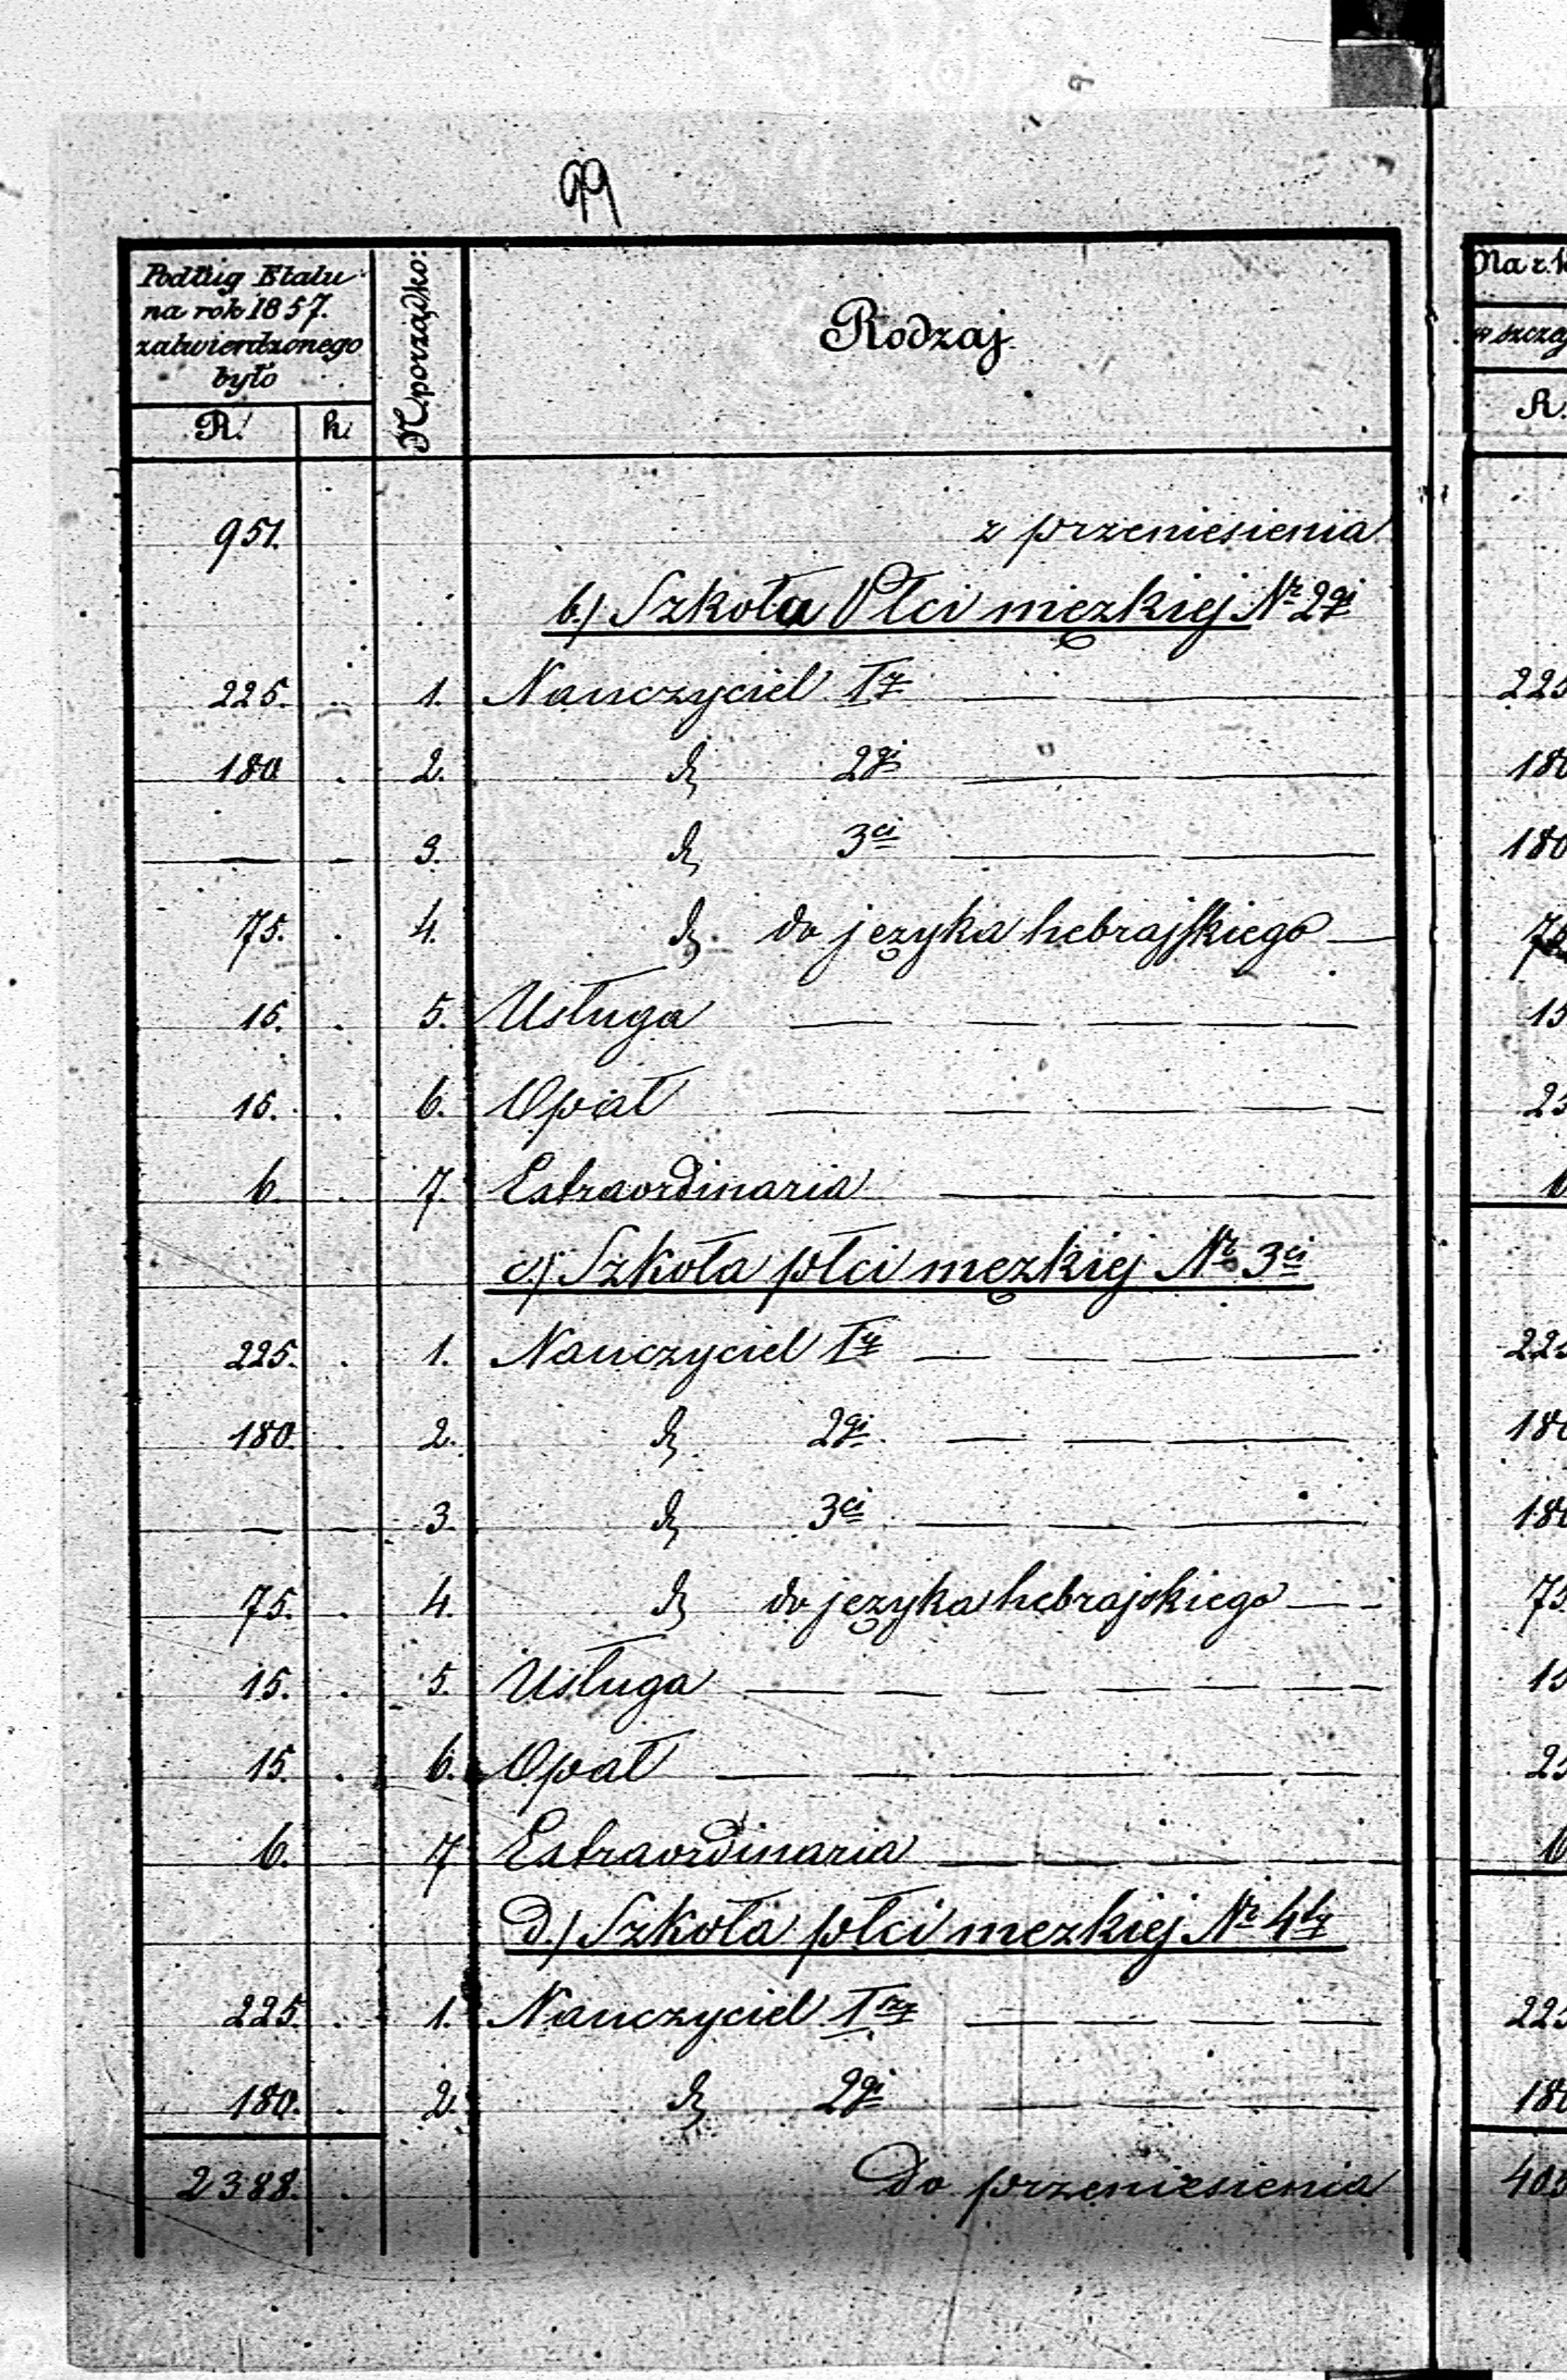 99
Podług Etatu
na rok 1857.
zatwierdzonego
było
R. k.
N. porządko:
Rodzaj
Na r. k
w szczeg
R.
951. z przeniesienia
b.) Szkoła Płci męzkiej Nr 2gi
225. 1. Nauczyciel 1y 225
180 2. dto 2gi 180
— - 3. dto 3ci 180
75. 4. dto do języka hebrajskiego 75
15. 5. Usługa 15
15. 6. Opał 25
6 7. Extraordinaria 6
c.) Szkoła płci męzkiej Nr 3ci
225. 1. Nauczyciel 1y 225
180. 2. dto 2gi 180
— - 3. dto 3ci 180
75. 4. dto do języka hebrajskiego 75
15. 5. Usługa 15
15. 6. Opał 25
6. 7. Extraordinaria 6
d.) Szkoła płci mezkiej Nr 4ty
225. 1. Nauczyciel 1szy 225
180. 2. dto 2gi 180
2388. Do przeniesienia 403